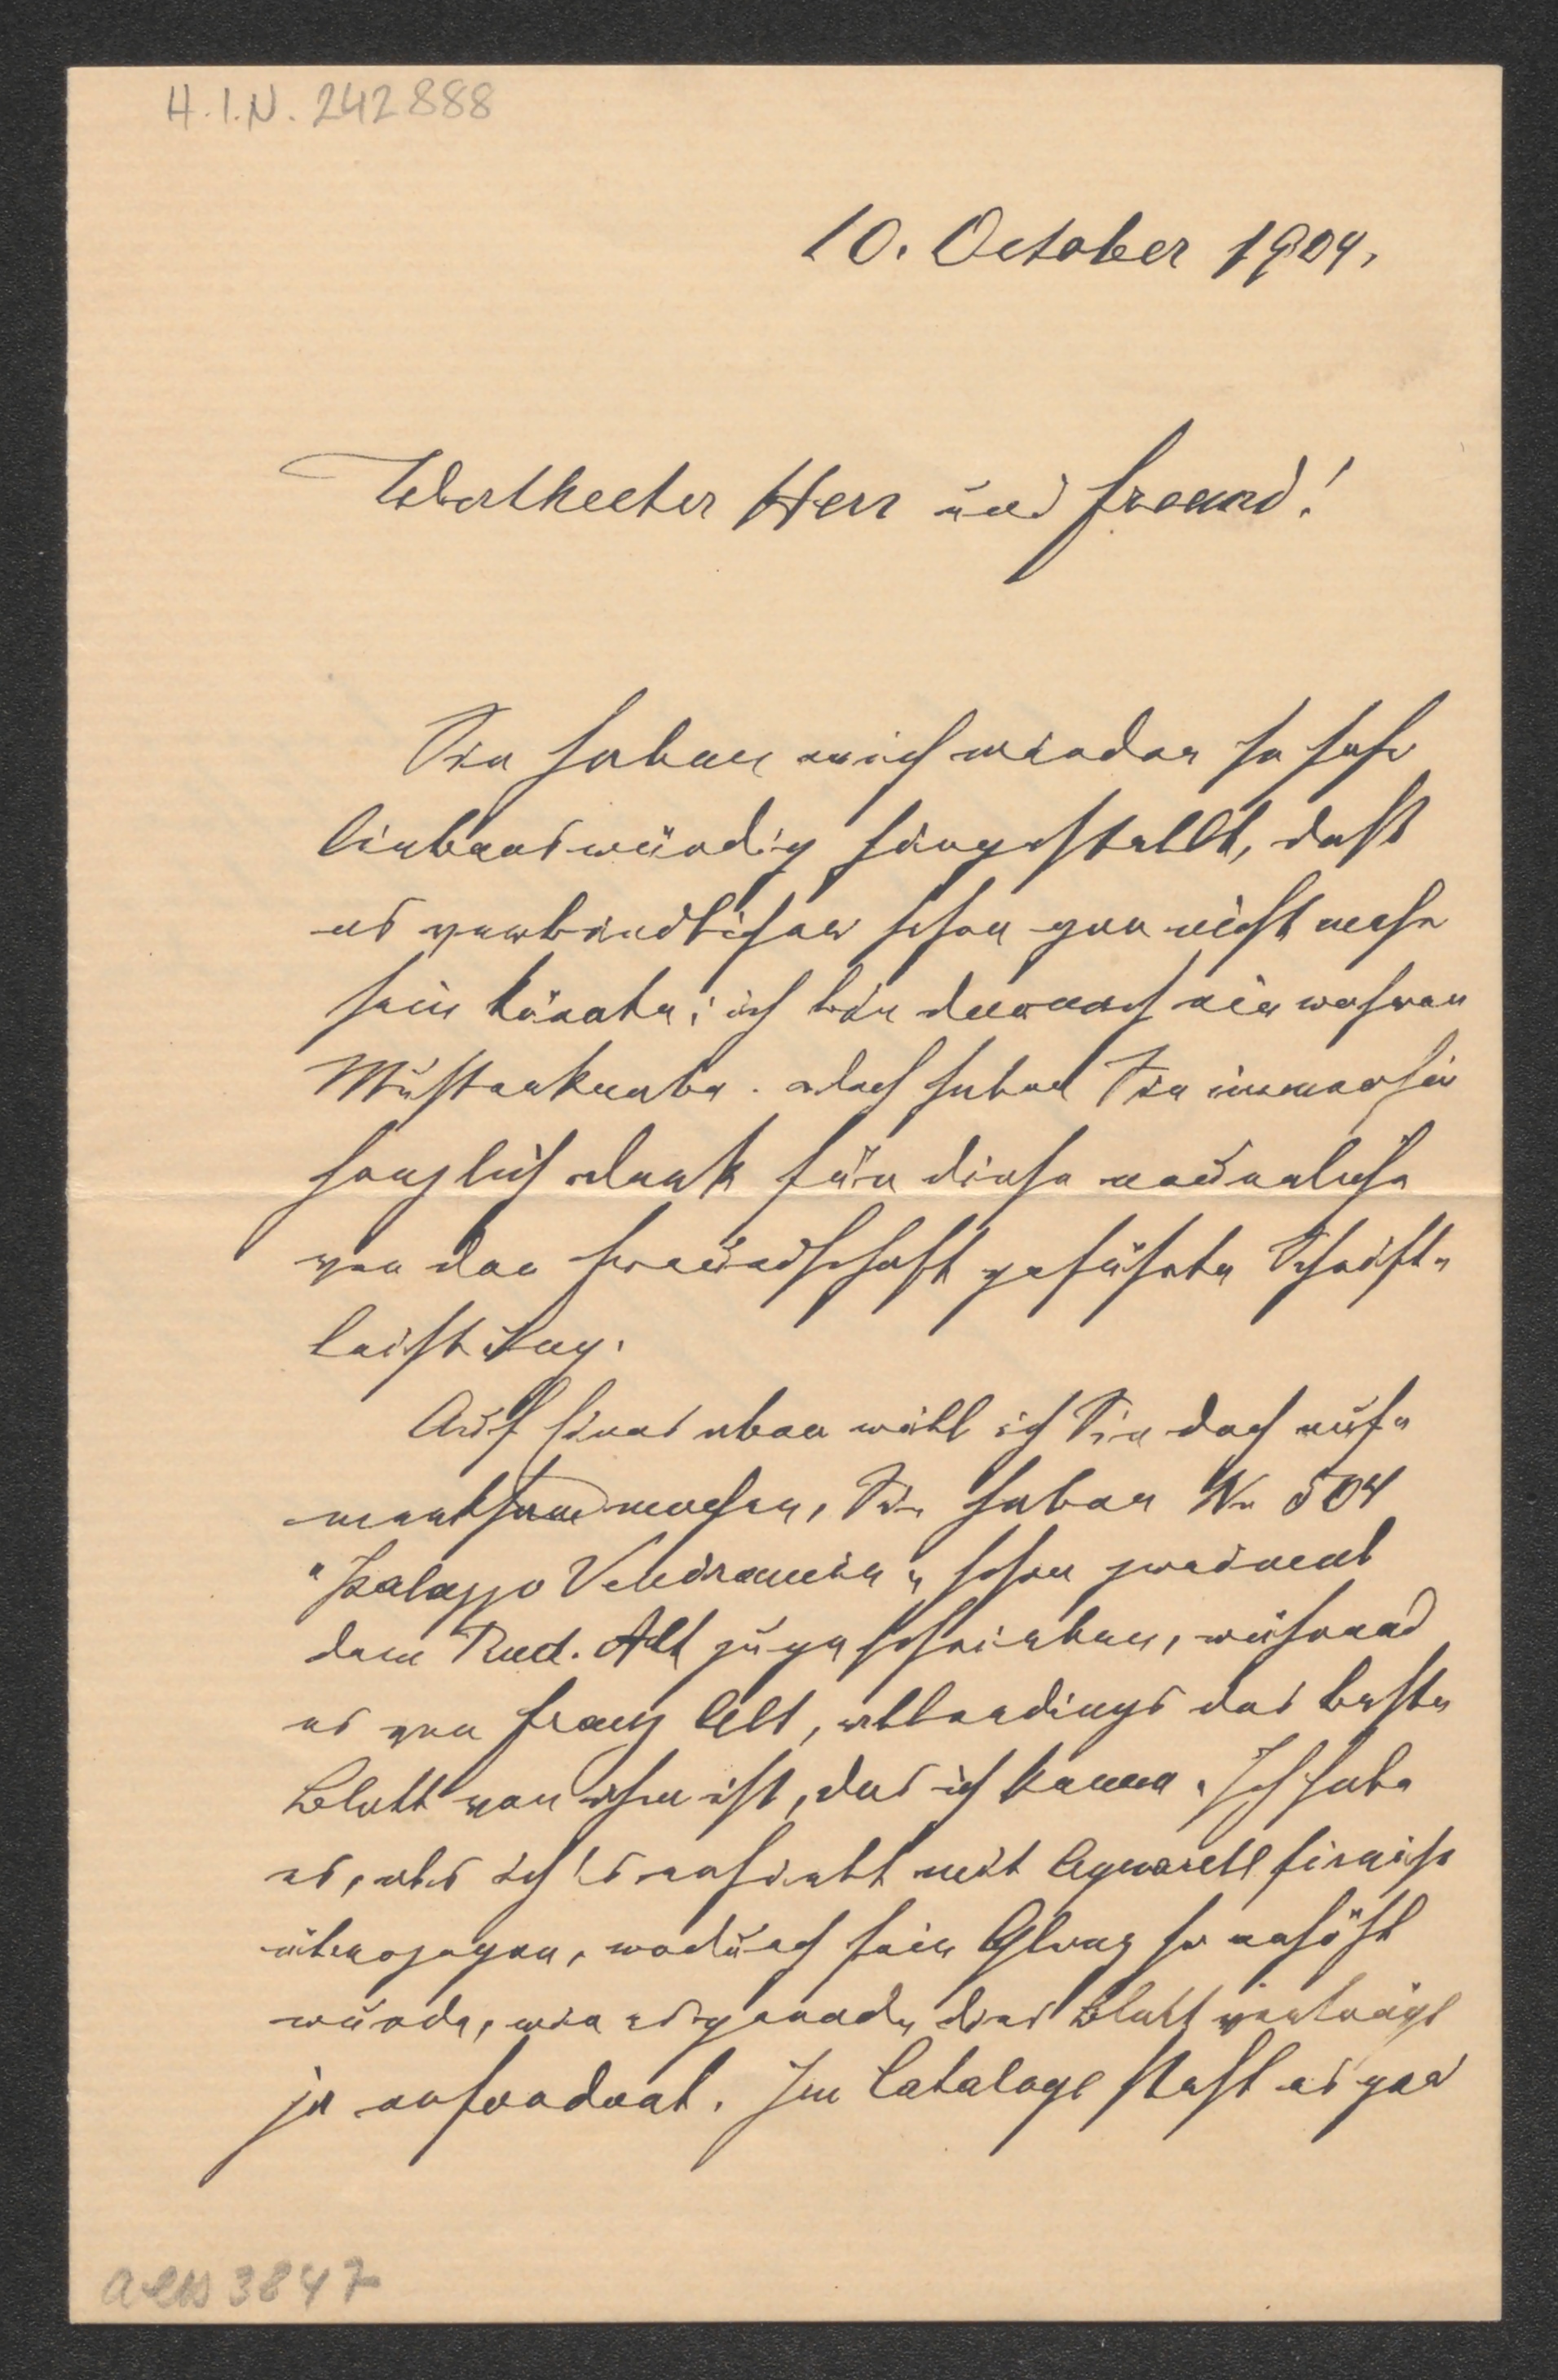 H.I.N. 242888
10. October 1904.
Werthester Herr und Freund!
Sie haben mich wieder so sehr
liebenswürdig hingestellt, daß
es verbindlicher schon gar nicht mehr
sein könnte; ich bin demnach ein wahrer
Musterknabe. Doch haben Sie immerhin
herzlich Dank für diese neuerliche
von der Freundschaft geführte Schrift-
leistung.
Auf eines aber will ich Sie doch auf-
merksam machen, Sie haben Nr 504
"Palazzo Vendramin" schon zweimal
dem Rud. Alt zugeschrieben, während
es von Franz Alt, allerdings das beste
Blatt von ihm ist, das ich kenne. Ich habe
es, als ich's erhielt mit Aquarellfirniß
überzogen, wodurch sein Glanz so erhöht
wurde, wie es gerade dies Blatt verträgt
ja erfordert. Im Cataloge steht es gar
a ew 3847